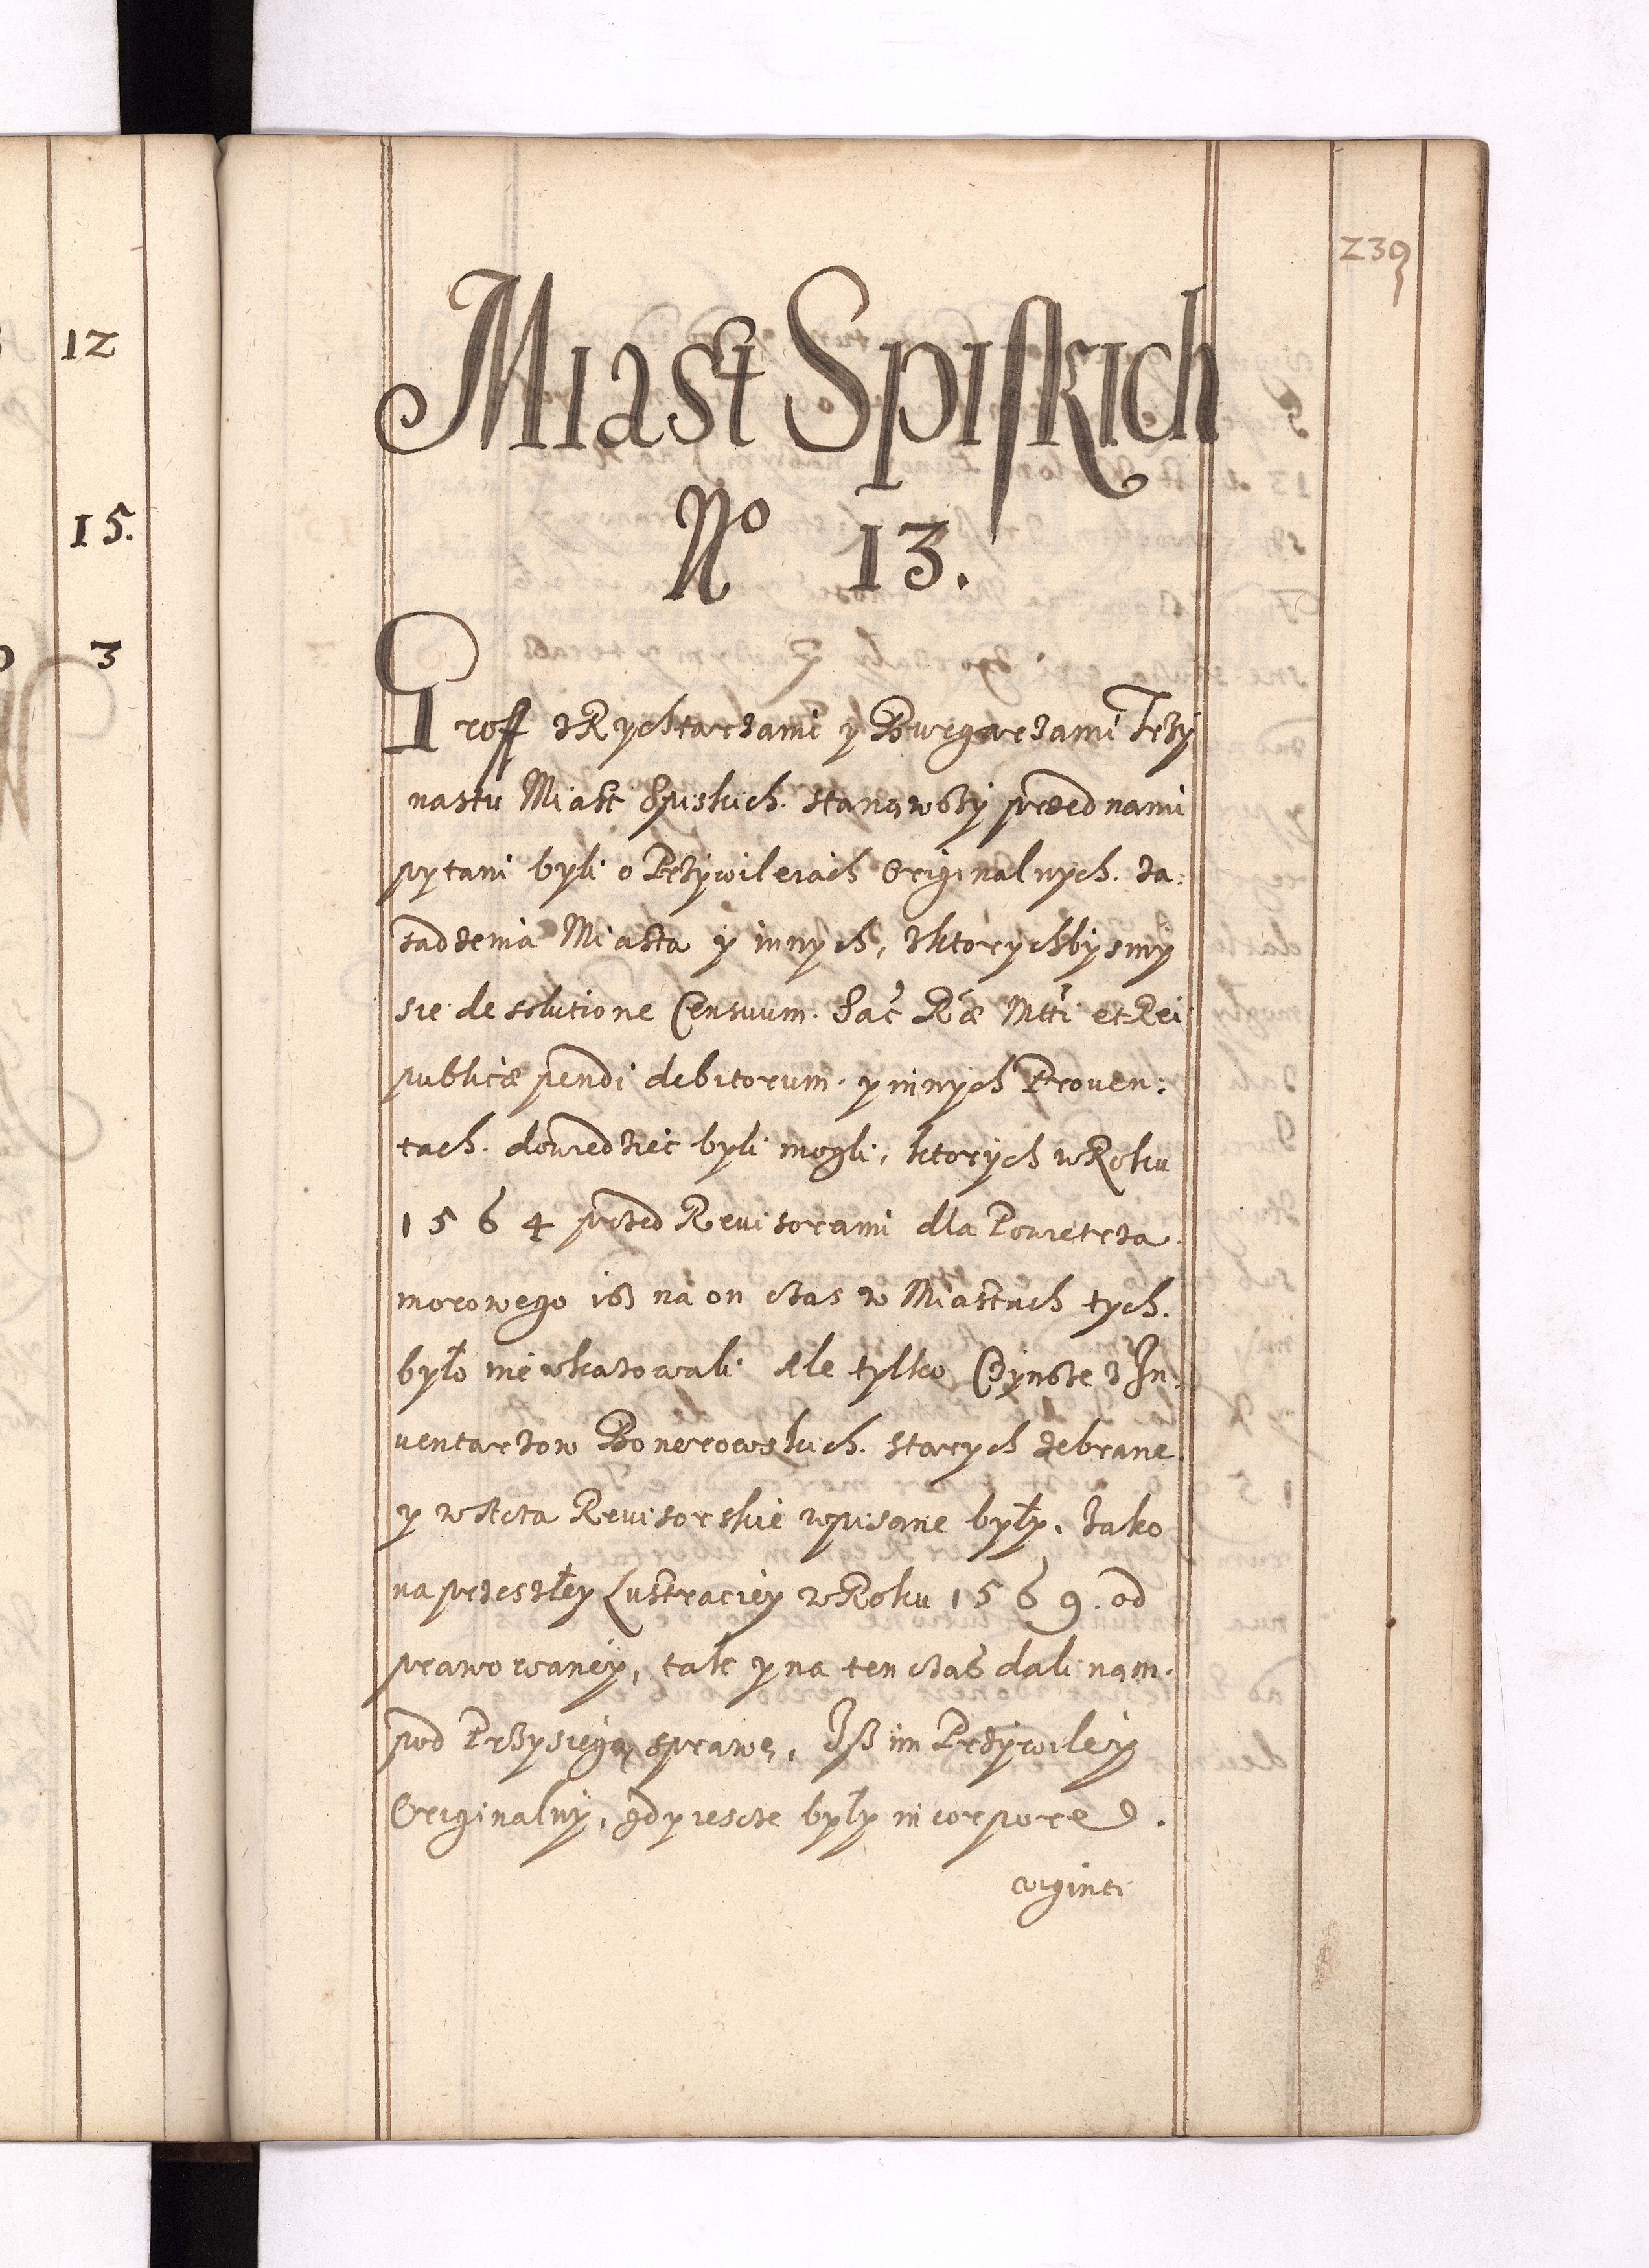 239
12
15.
3
Miast Spiſkich
No 13.
Groff z Rychtarzami y Burgarzami Trzy
nastu Miast Spiskich. stanąwszy przed nami
pytani byli o Przywileiach Originalnych. Za:
sadzenia Miasta y innych, zktorychbysmy
sie de solutione Censuum. Sac Ræ Mtti et Rei
publicæ pendi debitorum. y innych Proven:
tach. dowiedziec byli mogli, ktorych w Roku
1564 przed Revisorami dla Powietrza.
morowego isz na on czas w Miastach tych.
było nie vkazowali Ale tylko Czynsze z In:
ventarzow Bonerowskich. starych zebrane.
y w Acta Revisorskie wpisane były. Jako
na przeszłey Lustraciey w Roku 1569. od
prawowaney, tak y na ten czas dali nam.
pod Przysięgą sprawę, Isz im Przywiley
Originalny, gdy iescze były in corpore.
viginti